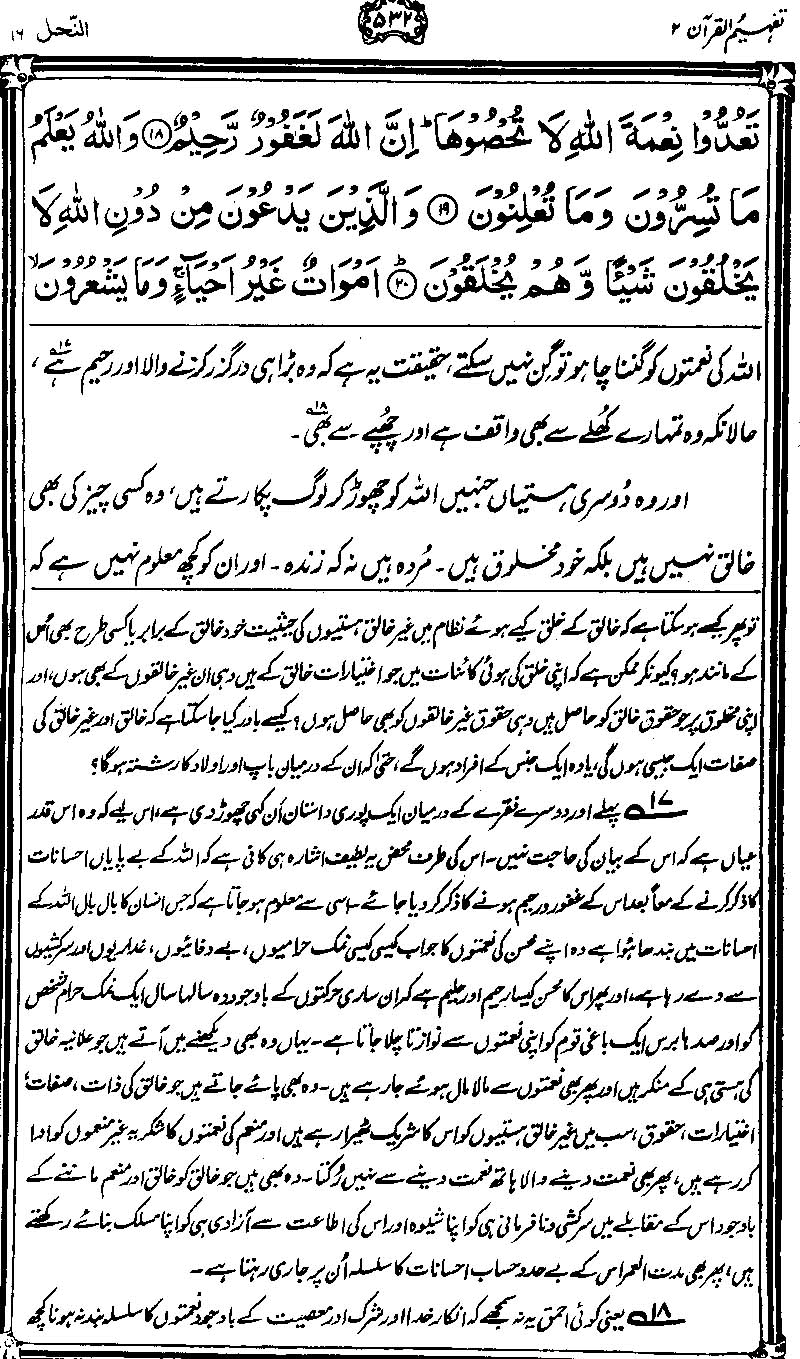 تفہیم القرآن ۲
۵۳۲
النّحل ۱۶
تَعُدُّوْا نِعْمَةَ اللّٰهِ لَا تُحْصُوْهَا ؕ اِنَّ اللّٰهَ لَغَفُوْرٌ رَّحِيْمٌ ﴿۱۸﴾ وَاللّٰهُ يَعْلَمُ
مَا تُسِرُّوْنَ وَمَا تُعْلِنُوْنَ ﴿۱۹﴾ وَالَّذِيْنَ يَدْعُوْنَ مِنْ دُوْنِ اللّٰهِ لَا
يَخْلُقُوْنَ شَيْـًٔا وَّهُمْ يُخْلَقُوْنَ ﴿۲۰﴾ اَمْوَاتٌ غَيْرُ اَحْيَآءٍ ۚ وَمَا يَشْعُرُوْنَ ۙ
اللہ کی نعمتوں کو گننا چاہو تو گِن نہیں سکتے، حقیقت یہ ہے کہ وہ بڑا ہی درگزر کرنے والا اور رحیم ہے ۱۷،
حالانکہ وہ تمہارے کُھلے سے بھی واقف ہے اور چُھپے سے بھی ۱۸۔
اور وہ دُوسری ہستیاں جنہیں اللہ کو چھوڑ کر لوگ پکارتے ہیں، وہ کسی چیز کی بھی
خالق نہیں ہیں بلکہ خود مخلوق ہیں۔ مُردہ ہیں نہ کہ زندہ۔ اور ان کو کچھ معلوم نہیں ہے کہ
تو پھر کیسے ہو سکتا ہے کہ خالق کے خلق کیے ہوئے نظام میں غیر خالق ہستیوں کی حیثیت خود خالق کے برابر یا کسی طرح بھی اُس
کے مانند ہو؟ کیونکر ممکن ہے کہ اپنی خلق کی ہوئی کائنات میں جو اختیارات خالق کے ہیں وہی ان غیر خالقوں کے بھی ہوں، اور
اپنی مخلوق پر جو حقوق خالق کو حاصل ہیں وہی حقوق غیر خالقوں کو بھی حاصل ہوں؟ کیسے باور کیا جا سکتا ہے کہ خالق اور غیر خالق کی
صفات ایک جیسی ہوں گی، یا وہ ایک جنس کے افراد ہوں گے، حتیٰ کہ ان کے درمیان باپ اور اولاد کا رشتہ ہوگا؟
۱۷ پہلے اور دوسرے فقرے کے درمیان ایک پوری داستان اَن کہی چھوڑ دی ہے، اس لیے کہ وہ اس قدر
عیاں ہے کہ اس کے بیان کی حاجت نہیں۔ اس کی طرف محض یہ لطیف اشارہ ہی کافی ہے کہ اللہ کے بے پایاں احسانات
کا ذکر کرنے کے معاً بعد اس کے غفور و رحیم ہونے کا ذکر کر دیا جائے۔ اسی سے معلوم ہو جاتا ہے کہ جس انسان کا بال بال اللہ کے
احسانات میں بندھا ہُوا ہے وہ اپنے محسن کی نعمتوں کا جواب کیسی کیسی نمک حرامیوں، بے وفائیوں، غداریوں اور سرکشیوں
سے دے رہا ہے، اور پھر اس کا محسن کیسا رحیم اور حلیم ہے کہ ان ساری حرکتوں کے باوجود وہ سالہا سال ایک نمک حرام شخص
کو اور صدہا برس ایک باغی قوم کو اپنی نعمتوں سے نوازتا چلا جاتا ہے۔ یہاں وہ بھی دیکھنے میں آتے ہیں جو علانیہ خالق
کی ہستی ہی کے منکر ہیں اور پھر بھی نعمتوں سے مالا مال ہوئے جا رہے ہیں۔ وہ بھی پائے جاتے ہیں جو خالق کی ذات، صفات،
اختیارات، حقوق، سب میں غیر خالق ہستیوں کو اس کا شریک ٹھیرا رہے ہیں اور منعم کی نعمتوں کا شکریہ غیر منعموں کو ادا
کر رہے ہیں، پھر بھی نعمت دینے والا ہاتھ نعمت دینے سے نہیں رُکتا۔ وہ بھی ہیں جو خالق کو خالق اور منعم ماننے کے
باوجود اس کے مقابلے میں سرکشی و نافرمانی ہی کو اپنا شیوہ اور اس کی اطاعت سے آزادی ہی کو اپنا مسلک بنائے رکھتے
ہیں، پھر بھی مدت العمر اس کے بے حد و حساب احسانات کا سلسلہ اُن پر جاری رہتا ہے۔
۱۸ یعنی کوئی احمق یہ نہ سمجھے کہ انکارِ خدا اور شرک اور معصیت کے باوجود نعمتوں کا سلسلہ بند نہ ہونا کچھ